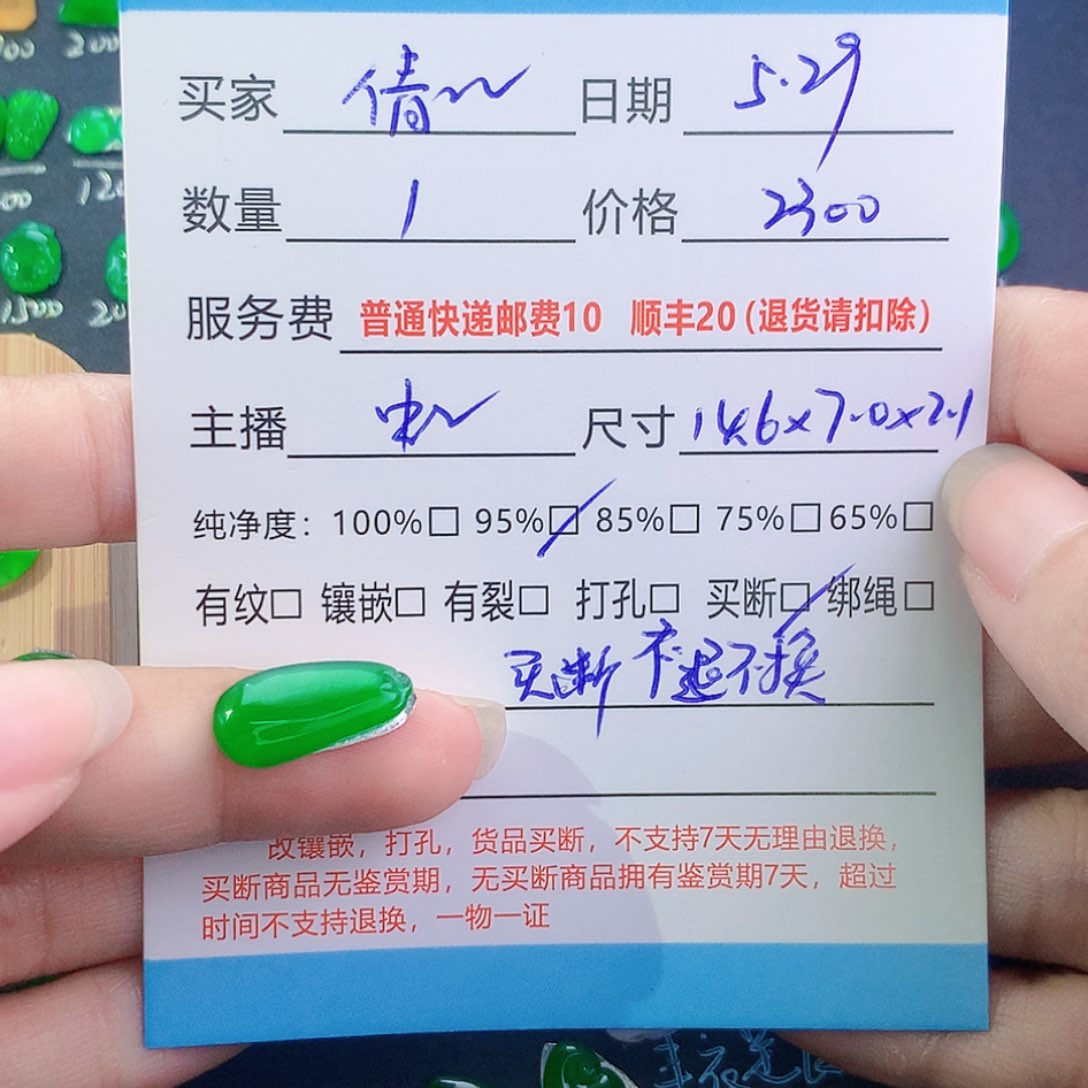 买家 倩 日期 5.29
数量 1 价格 2300
服务费 普通快递邮费10 顺丰20(退货请扣除)
主播 尺寸 14.6x7.0x2.1
纯净度：100%□ 95%□ 85%□ 75%□ 65%□
有纹□ 镶嵌□ 有裂□ 打孔□ 买断□ 绑绳□
买断 不退不换
改镶嵌，打孔，货品买断，不支持7天无理由退换，
买断商品无鉴赏期，无买断商品拥有鉴赏期7天，超过
时间不支持退换，一物一证
200
120
1500